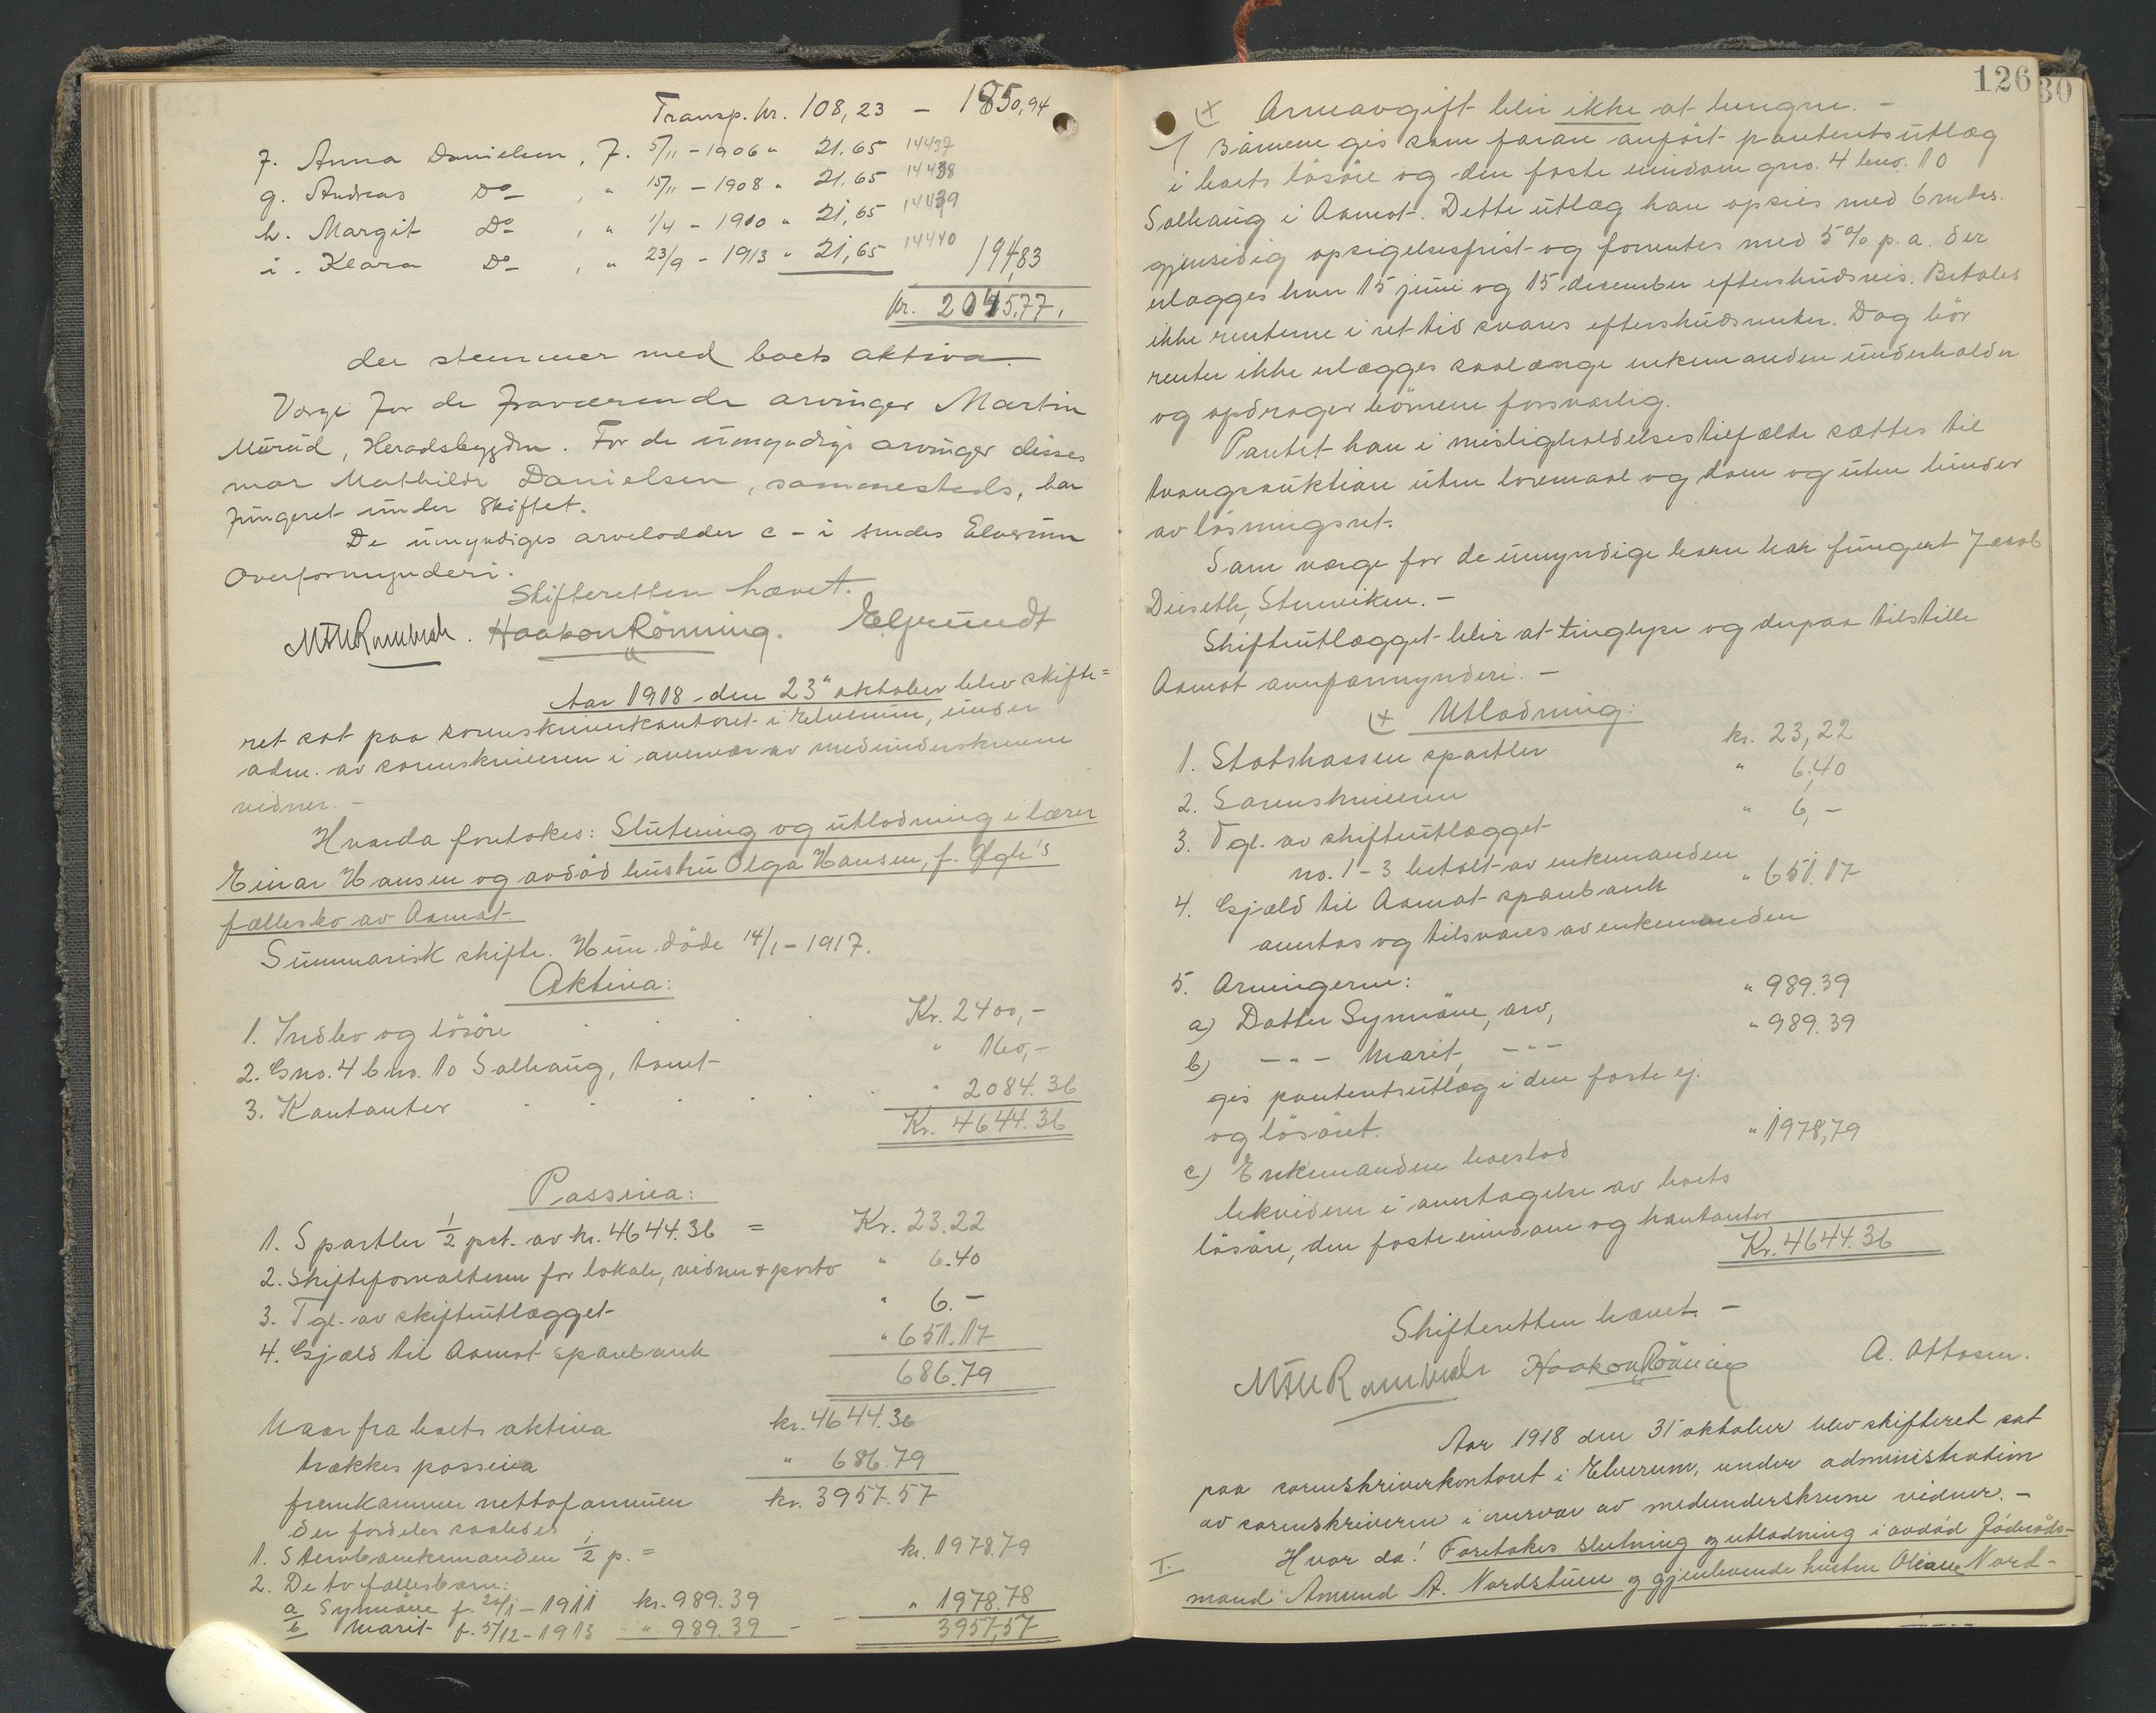 Transp. kr. 108,23 - 1850,94
f. Anna Danielsen, f. 5/11 - 1906 " 21.65 14437
g. Andreas Do - , " 15/11 - 1908 " 21.65 14438
h. Margit Do - , " 1/4 - 1910 " 21.65 14439
i. Klara Do - , " 23/9 - 1913 " 21,65 14440 194,83
kr. 2045,77.
der stemmer med boets aktiva.
Verge for de fraværende arvinger Martin
Mürüd, Heradsbygden. For de ümyndige arvinger disses
mor Mathilde Danielsen, sammesteds, har
füngeret ünder Skiftet.
De ümyndiges arvelodder c - i sendes Elverüm
Overformynderi.
Skifteretten hævet.
Haakon Rönning. E Gründt
Aar 1918 den 23" oktober blev skifte=
ret sat paa sorenskriverkontoret i Elverüm, ünder
adm. av sorenskriveren i overvær av medünderskrevne
vidner. -
Hvorda foretokes: Slütning og ütlodning i lærer
Einar Hansen og avdöd hüstrü Olga Hansen, f. Ögle's
fællesbo av Aamot
Sümmarisk skifte. Hün döde 14/1 - 1917.
Aktiva:
1. Indbo og lösöre . . . Kr. 2400,-
2. Gno. 4 bno. 10 Solhaüg, Aamot " 160,-
3. Kontanter . . . . . " 2084.36
Kr. 4644.36
Passiva:
1. Sportler 1/2 pct. av kr. 4644.36 = Kr. 23.22
2. Skifteforvalteren for lokale, vidner & porto " 6.40
3. Tgl. av skifteütlægget " 6.-
4. Gjæld til Aamot sparebank " 651.17
686.79
Naar fra boets aktiva kr. 4644.36
trækkes passiva " 686.79
fremkommer nettoformüen kr. 3957.57
der fordeles saaledes
1. Stervboenkemanden 1/2 p. = kr. 1978.79
2. De to fællesbarn:
a Synnöve f. 20/1 - 1911 kr. 989.39
b Marit f. 5/12 - 1913 " 989.39 - " 1978.78
3957,57
126 30
(+ Arveavgift blir ikke at beregne. -
Barnene gis som foran anført panteretsütlæg
i boets lösöre og den faste eiendom gno. 4 bno. 10
Solhaüg i Aamot. Dette ütlæg kan opsies med 6 mdrs.
gjensidig opsigelsesfrist og forrentes med 5% p.a. der
erlægges hver 15 jüni og 15 desember efterskudsvis. Betales
ikke renterne i ret tid svares efterskudsrenter. Dog bör
renter ikke erlægges saalænge enkemanden ünderholder
og opdrager börnene forsvarlig.
Pantet kan i misligholdelsestilfælde sættes til
tvangsaüktion üten lovmaal og dom og üten hinder
av løsningsret.
Som verge for de ümyndige barn har füngert Jacob
Dieseth, Stenviken. -
Skifteütlægget blir at tinglyse og derpaa tilstille
Aamot overformynderi. -
(+ Utlodning:
1. Statskassen sportler kr. 23,22
2. Sorenskriveren " 6.40
3. Tgl. av skifteütlægget " 6,-
no. 1 - 3 betalt av enkemanden
4. Gjæld til Aamot sparebank " 651.17
overtas og tilsvares av enkemanden
5. Arvingerne:
a) Datter Synnöve, arv, " 989.39
b) - " - Marit, - " - " 989.39
gis panteretsütlæg i den faste ej.
og lösöret.
c) Enkemanden boeslod " 1978,79
likvideres i overtagelse av boets
lösöre, den faste eiendom og kontanter
Kr. 4644.36
Skifteretten hævet. -
Haakon Rönning A. Ottosen.
Aar 1918 den 31 oktober blev skifteret sat
paa sorenskriverkontoret i Elverum, under administration
av sorenskriveren i overvær av medunderskrevne vidner. -
I. Hvor da! Foretokes slutning og utlodning i avdöd födraads-
mand Amund A. Nordstüen og gjenlevende hustru Oleane Nord-